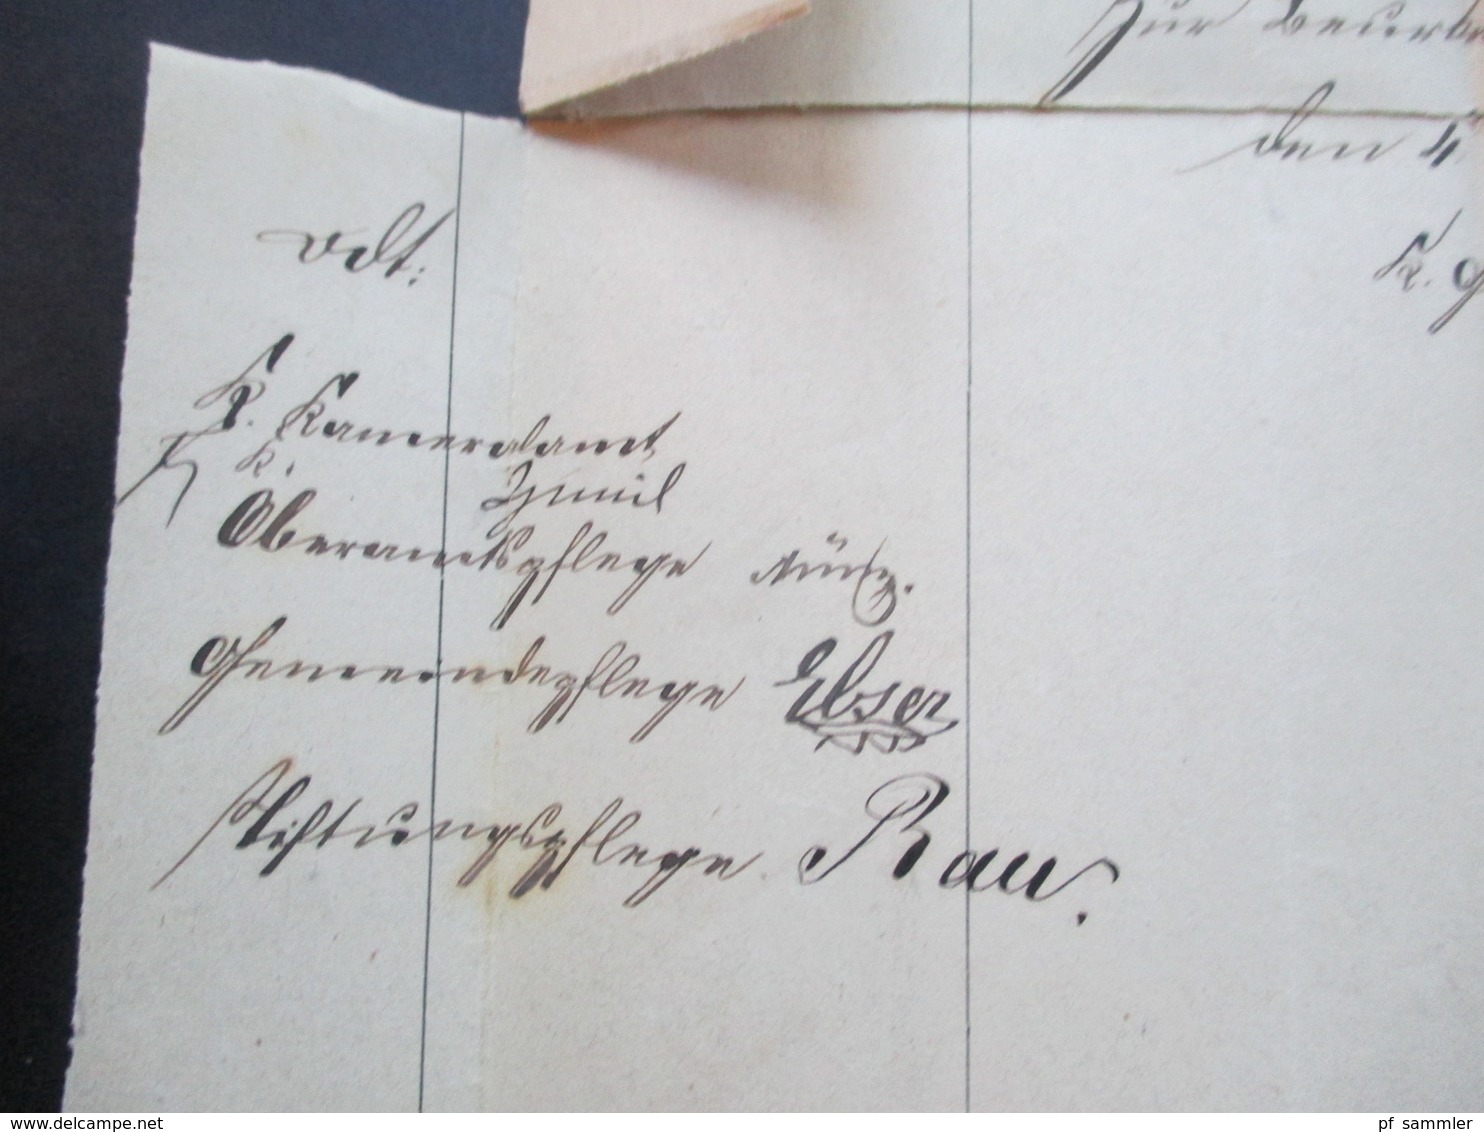 Zur Beurk
den 4
K. G
vdt:
K. Kameralamt
K.
Oberamtspflege
Gemeindepflege Elser
Stiftungspflege Rau.
www.delcampe.net
pf_sammler